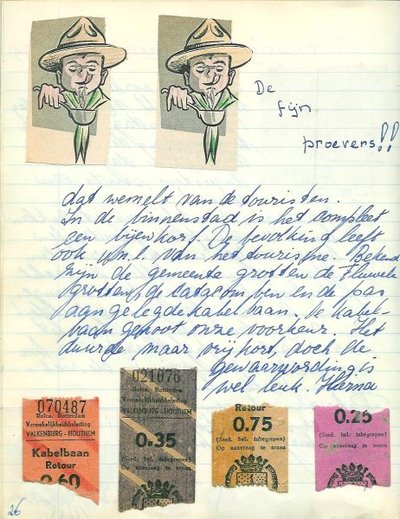 De
fijn
proevers!!
dat wemelt van de touristen.
In de binnenstad is het compleet
een bijenkorf. De bevolking leeft
ook v.n.l. van het tourisme. Bekend
zijn de gemeente grotten de Fluwele
grotten, de catacomben en de pas
aangelegde kabelbaan. De kabel-
baan genoot onze voorkeur. Het
duurde maar vrij kort, doch de
gewaarwording is
wel leuk. Hierna
070487
Rotra. Rotterdam
Vermakelijkheidsbelasting
VALKENBURG - HOUTHEM
Kabelbaan
Retour
0.60
021076
Rotra. Rotterdam
Vermakelijkheidsbelasting
VALKENBURG - HOUTHEM
0.35
(Sted. bel. inbegrepen)
Op aanvraag te tonen
Retour
0.75
(Sted. bel. inbegrepen)
Op aanvraag te tonen
0.25
(Sted. bel. inbegrepen)
Op aanvraag te tonen
26